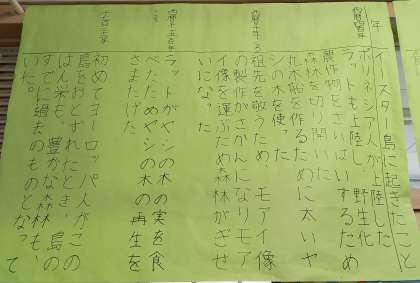 年
イースター島に起きたこと
ポリネシア人が上陸した
ラットも上陸し、野生化
農作物をさいばいするため
森林を切り開いた
丸木船を作るために太いヤ
シの木を使った
祖先を敬うため、モアイ像
の製作がさかんになりモア
イ像を運ぶため森林がぎせ
いになった
ラットがヤシの木の実を食
べたためヤシの木の再生を
さまたげた
初めてヨーロッパ人がこの
島をおとずれたとき、島の
はん栄も、豊かな森林も、
すでに過去のものとなって
いた。